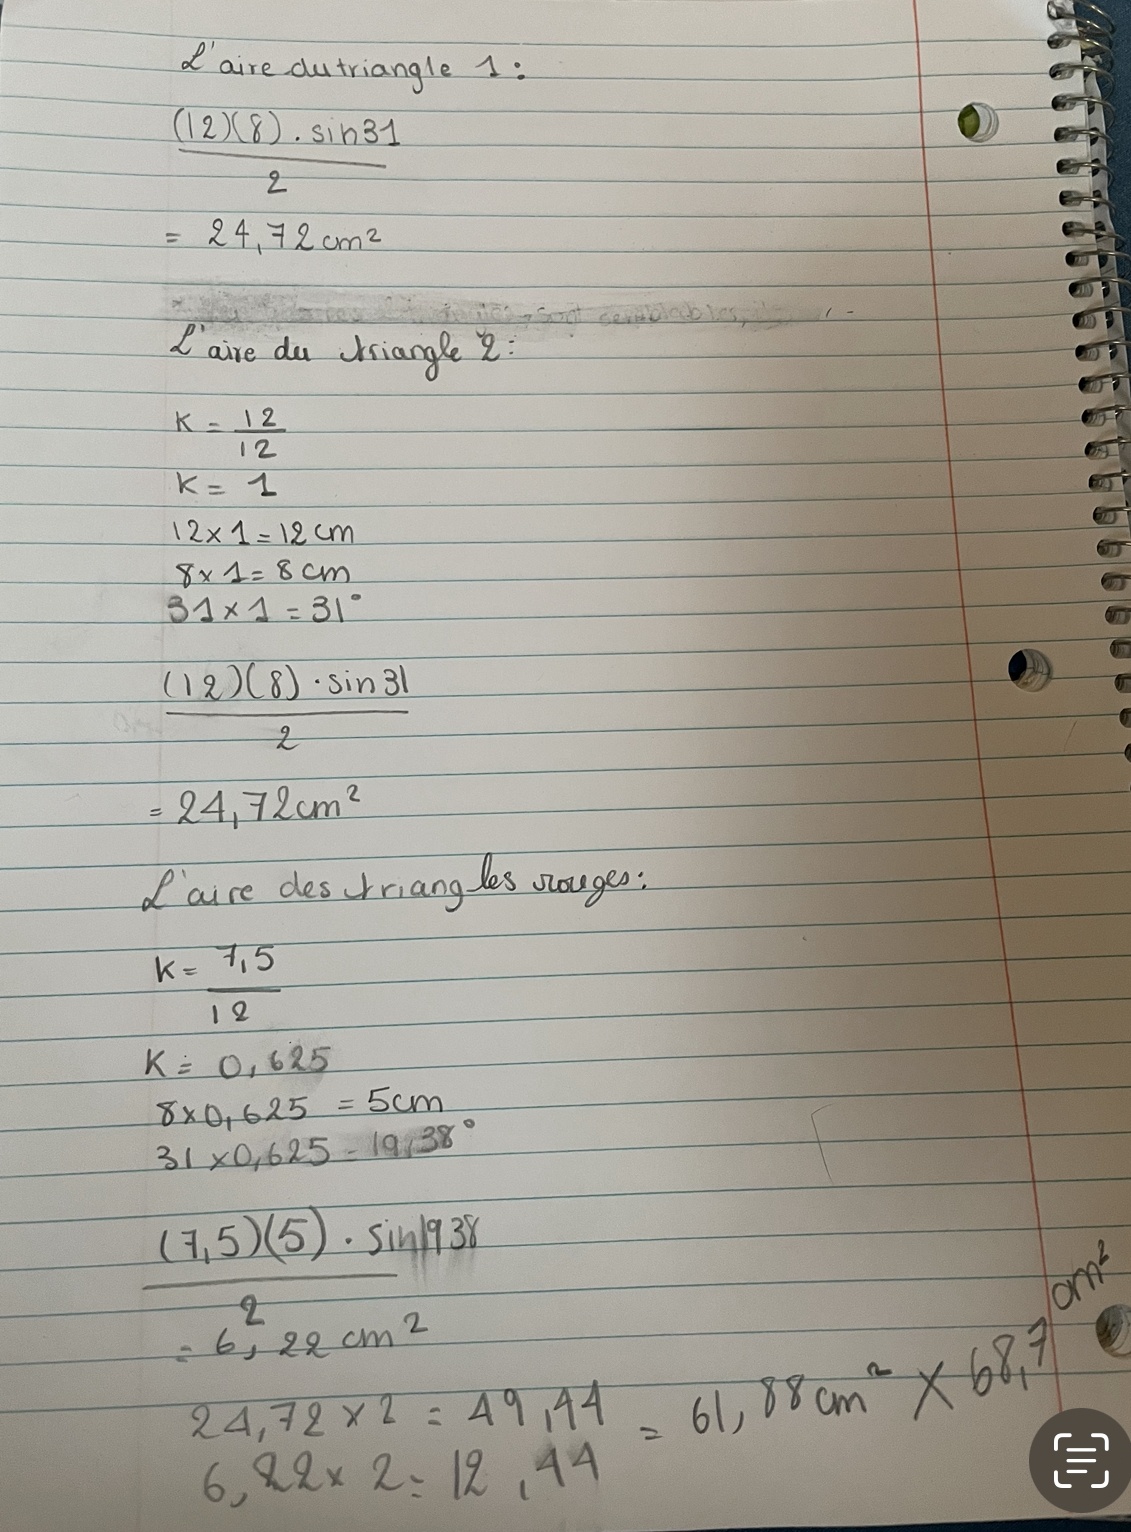 L'aire du triangle 1 :
(12)(8) . sin31
2
= 24,72 cm²
sont
L'aire du triangle 2 :
K = 12
12
K = 1
12 x 1 = 12 cm
8 x 1 = 8 cm
31 x 1 = 31°
(12)(8) . sin 31
2
= 24,72 cm²
L'aire des triangles rouges :
K = 7,5
12
K = 0,625
8x0,625 = 5cm
31 x0,625 = 19,38°
(7,5)(5) . sin1938
2
= 6,22 cm²
24,72 x 2 = 49,44 = 61,88 cm² X 68,7 cm²
6,22 x 2 = 12,44